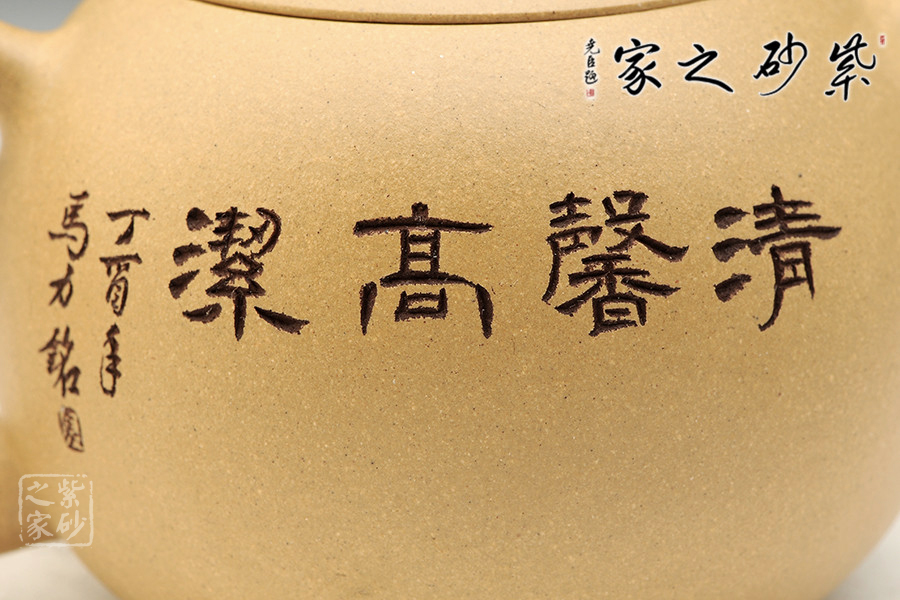 紫砂之家
尧臣题
清馨高潔
丁酉年
馬力銘
紫砂
之家